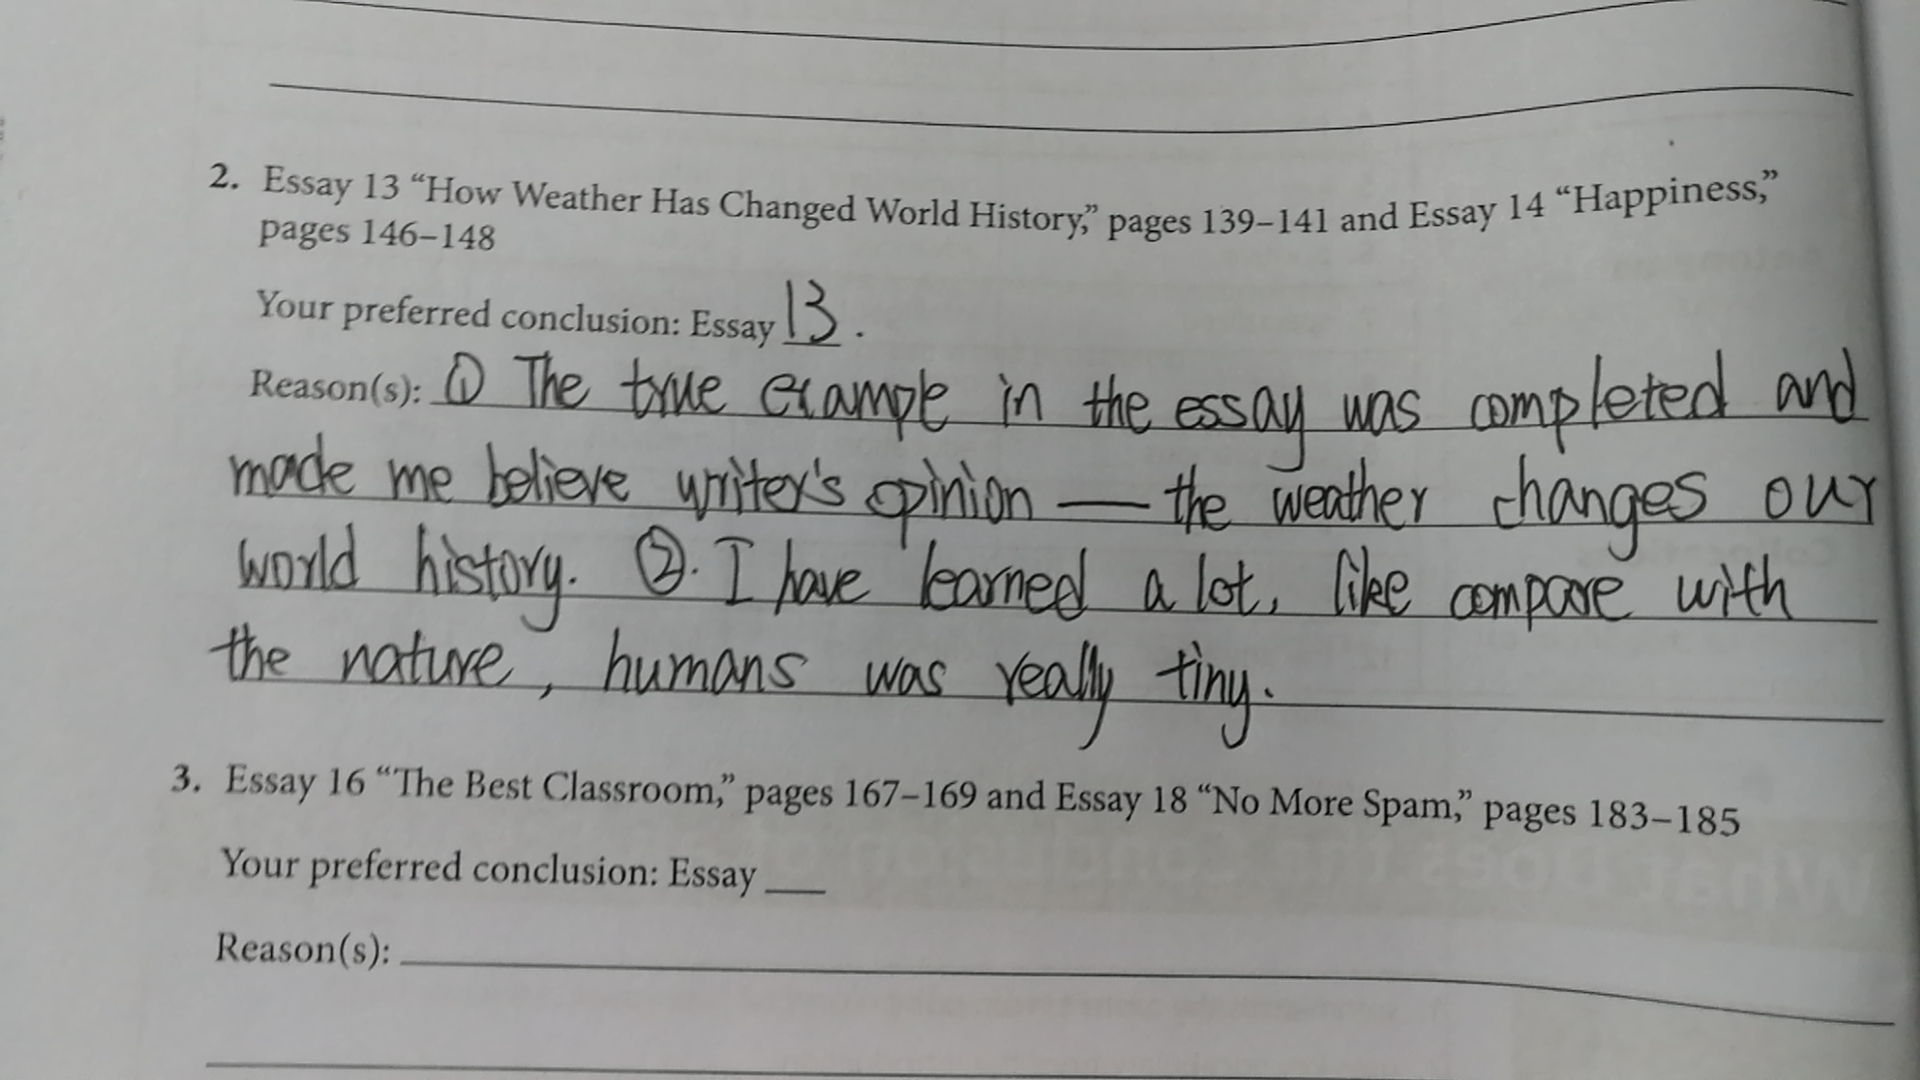 2. Essay 13 “How Weather Has Changed World History,” pages 139–141 and Essay 14 “Happiness,”
pages 146–148
Your preferred conclusion: Essay 13.
Reason(s): ① The true example in the essay was completed and
made me believe writer's opinion — the weather changes our
world history. ②. I have learned a lot, like compare with
the nature, humans was really tiny.
3. Essay 16 “The Best Classroom,” pages 167–169 and Essay 18 “No More Spam,” pages 183–185
Your preferred conclusion: Essay ___
Reason(s):